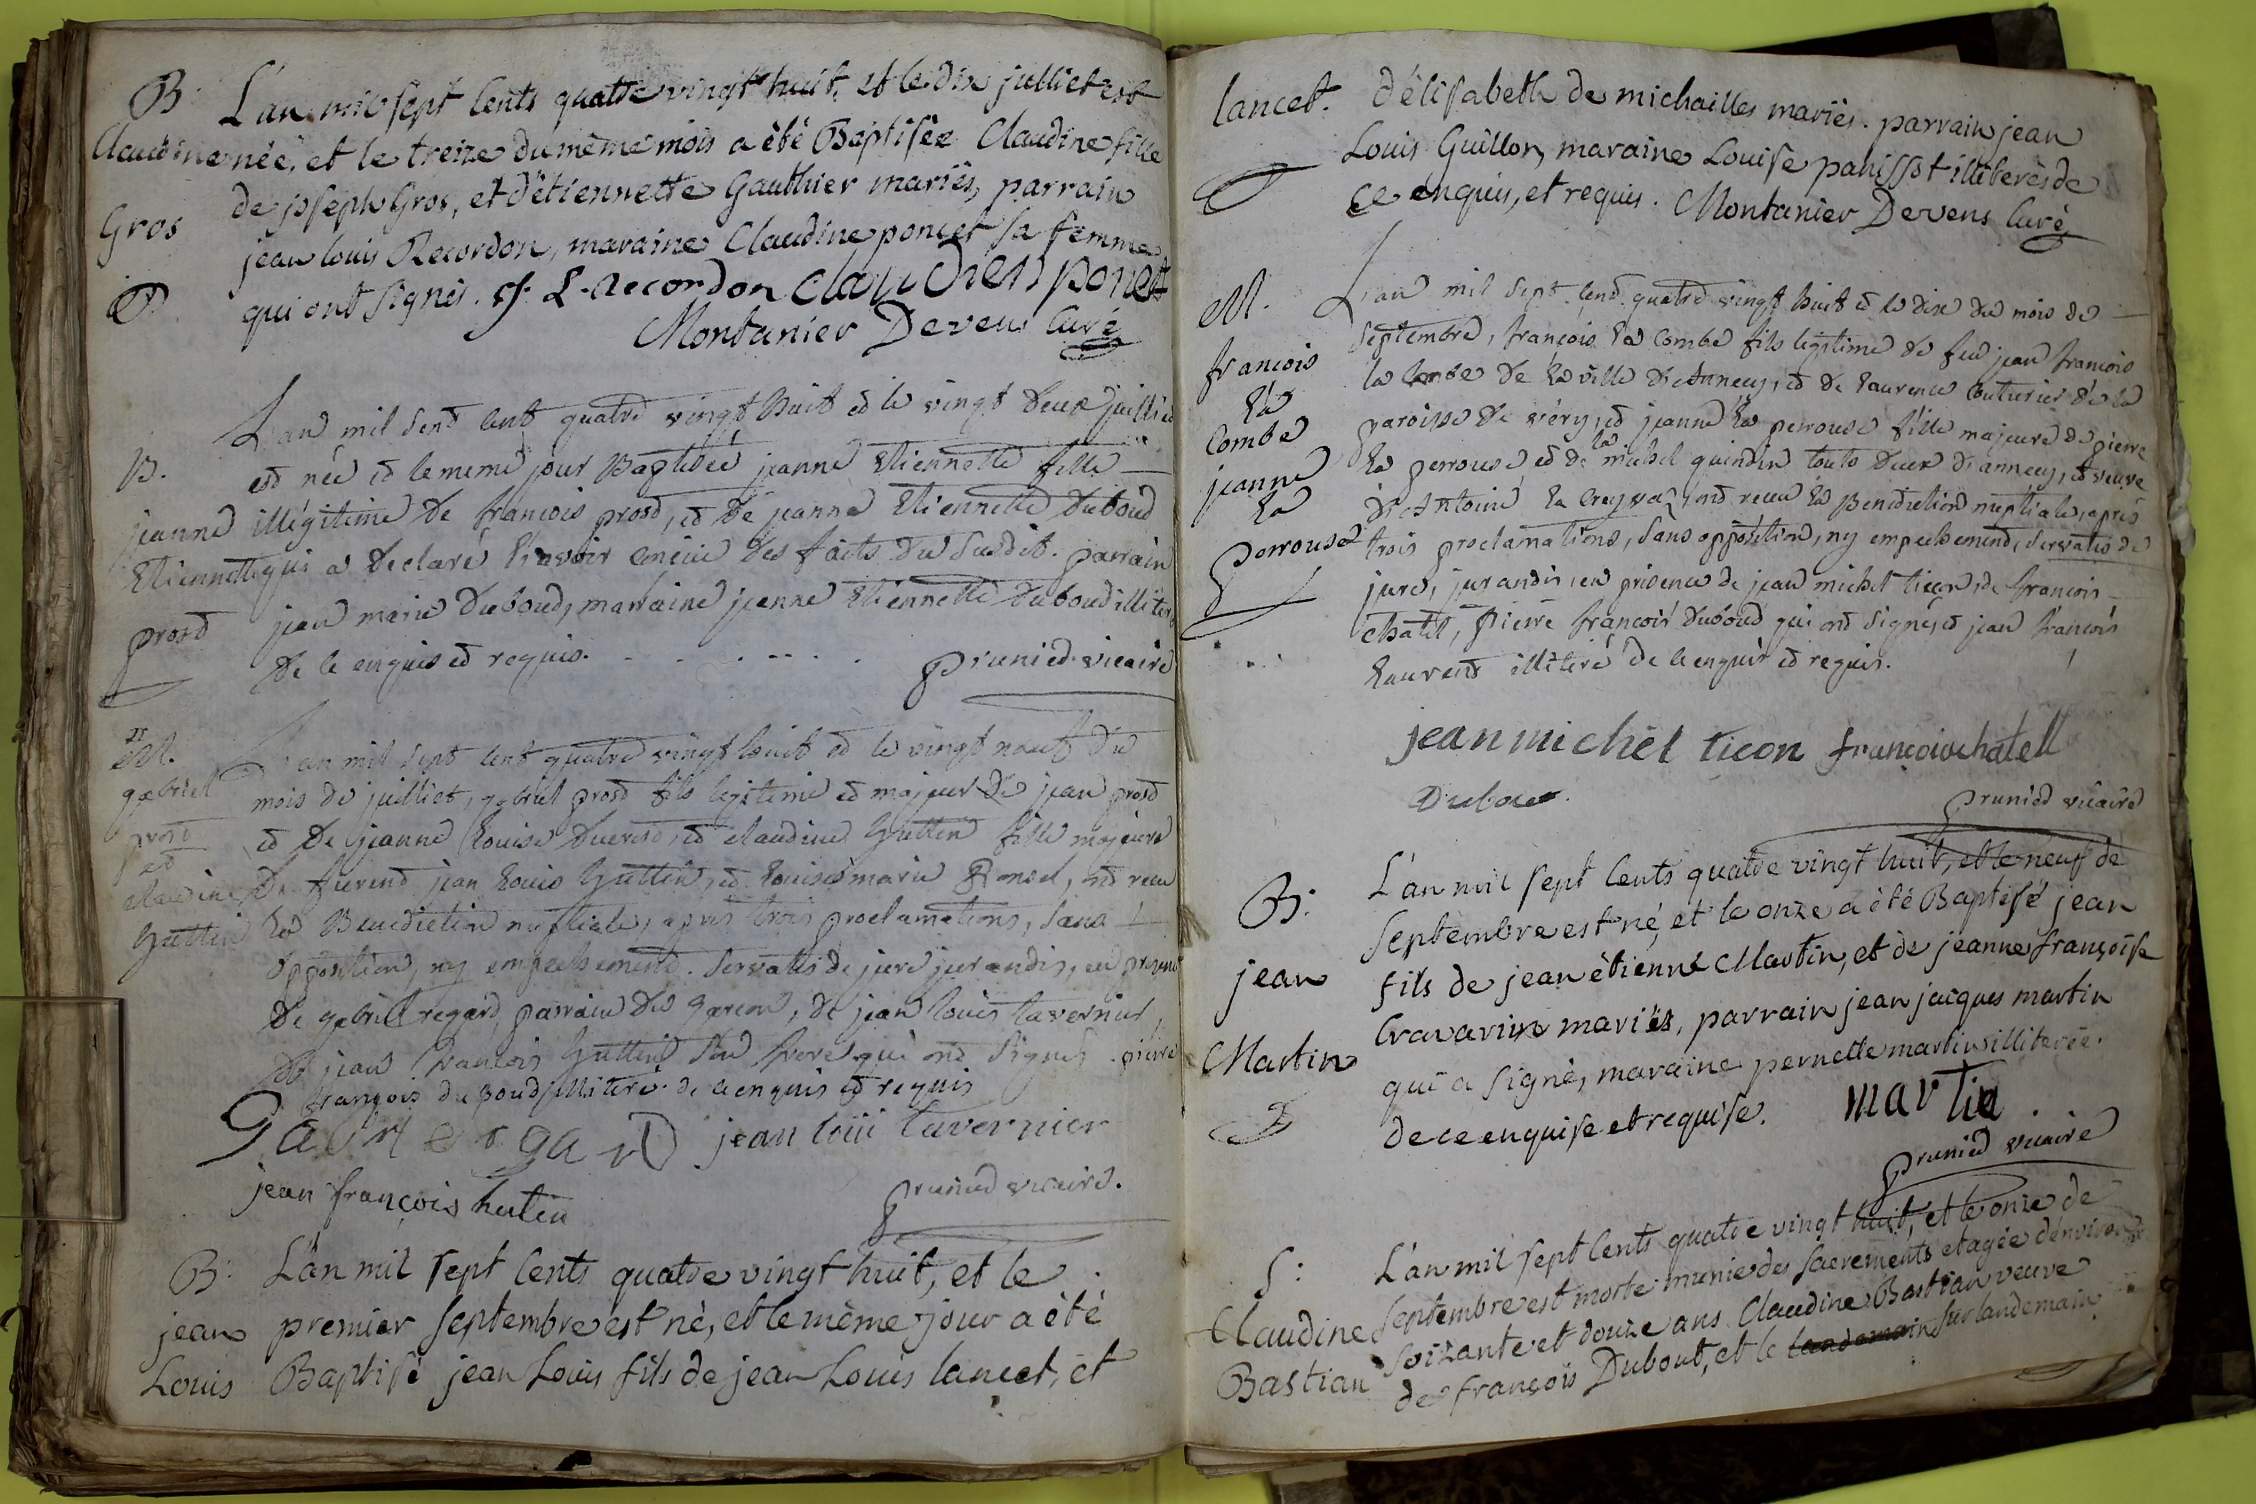 B: L'an mil sept cents quatre vingt huit, et le dix julliet est
Claudine née, et le treize du même mois a été Baptisée Claudine fille
de joseph Gros, et d'étiennette Gauthier mariés, parrain
Gros
jean louis Recordon, maraine Claudine poncet sa femme
qui ont signés. J. L. Recordon Claudien ponet
Montanier Devens Curé
L'an mil sept cent quatre vingt huit et le vingt deux juilliet
B. est née et le meme jour Baptisée jeanne Etiennette fille
jeanne illégitime de françois prost, et de jeanne Etiennette Duboud
Etiennette qui a declaré l'avoir encine des faits du susdit. parrain
prost jean marie Duboud, marraine jeanne Etiennette Duboud illiterés
de ce enquis et requis. prunied vicaire
M. L'an mil sept cent quatre vingt huit et le vingt neuf du
gabriel mois de juilliet, gabriel prost fils legitime et majeur de jean prost
prost et de jeanne Louise et claudine Guttin fille majeure
et
claudine de jean Louis Guttin, et Louise marie ont receu
Guttin la Benediction nuptiale, apres trois proclamations, sans
opposition, ny empechement. Servatis de jure jurandis, en presence
de gabriel regard, parrain du garcon, de jean louis tavernier,
de jean francois Guttin son frere qui ont signés. pierre
françois duboud illiteré de ce enquis et requis
Gabriel regard jean loüi tavernier
jean françois hutin prunied vicaire.
B: L'an mil sept cents quatre vingt huit, et le
jean premier septembre est né, et le même jour a été
Louis Baptisé jean Louis fils de jean Louis lancet, et
lancet. d'élisabeth de michailles mariés. parrain jean
Louis Guillon, maraine Louise panissot illiterés de
ce enquis, et requis. Montanier Devens Curé
M. L'an mil sept cent quatre vingt huit et le dix du mois de
françois septembre, françois La Combe fils legitime de feu jean francois
La la Combe de la ville d'Annecy, et de Laurence Couturier de la
Combe paroisse de véry, et jeanne La perrouse fille majeure de pierre
jeanne La perrouse et de la michel guindin touts deux d'annecy, et veuve
La d'Antoine La ont receu la Benediction nuptiale, après
perrouse trois proclamations, sans opposition, ny empechement, servatis de
jure, jurandis, en présence de jean michel ticon, de françois
chatel, pierre françois Duboud qui ont signé, et jean françois
Laurent illiteré de ce enquis et requis.
jean michel ticon françois chatell
Duboud.
prunied vicaire
B: L'an mil sept cents quatre vingt huit, et le neuf de
septembre est né, et le onze a été Baptisé jean
jean fils de jean étienne Martin, et de jeanne françoise
Cravarin mariés, parrain jean jacques martin
Martin qui a signé, maraine pernette martin illiterée.
de ce enquise et requise. martin.
prunied vicaire
S: L'an mil sept cents quatre vingt huit, et le onze de
septembre est morte munie des sacrements et agée d'environ
Claudine soixante et douze ans Claudine Bastian veuve
Bastian de françois Dubout, et le landemain surlandemain